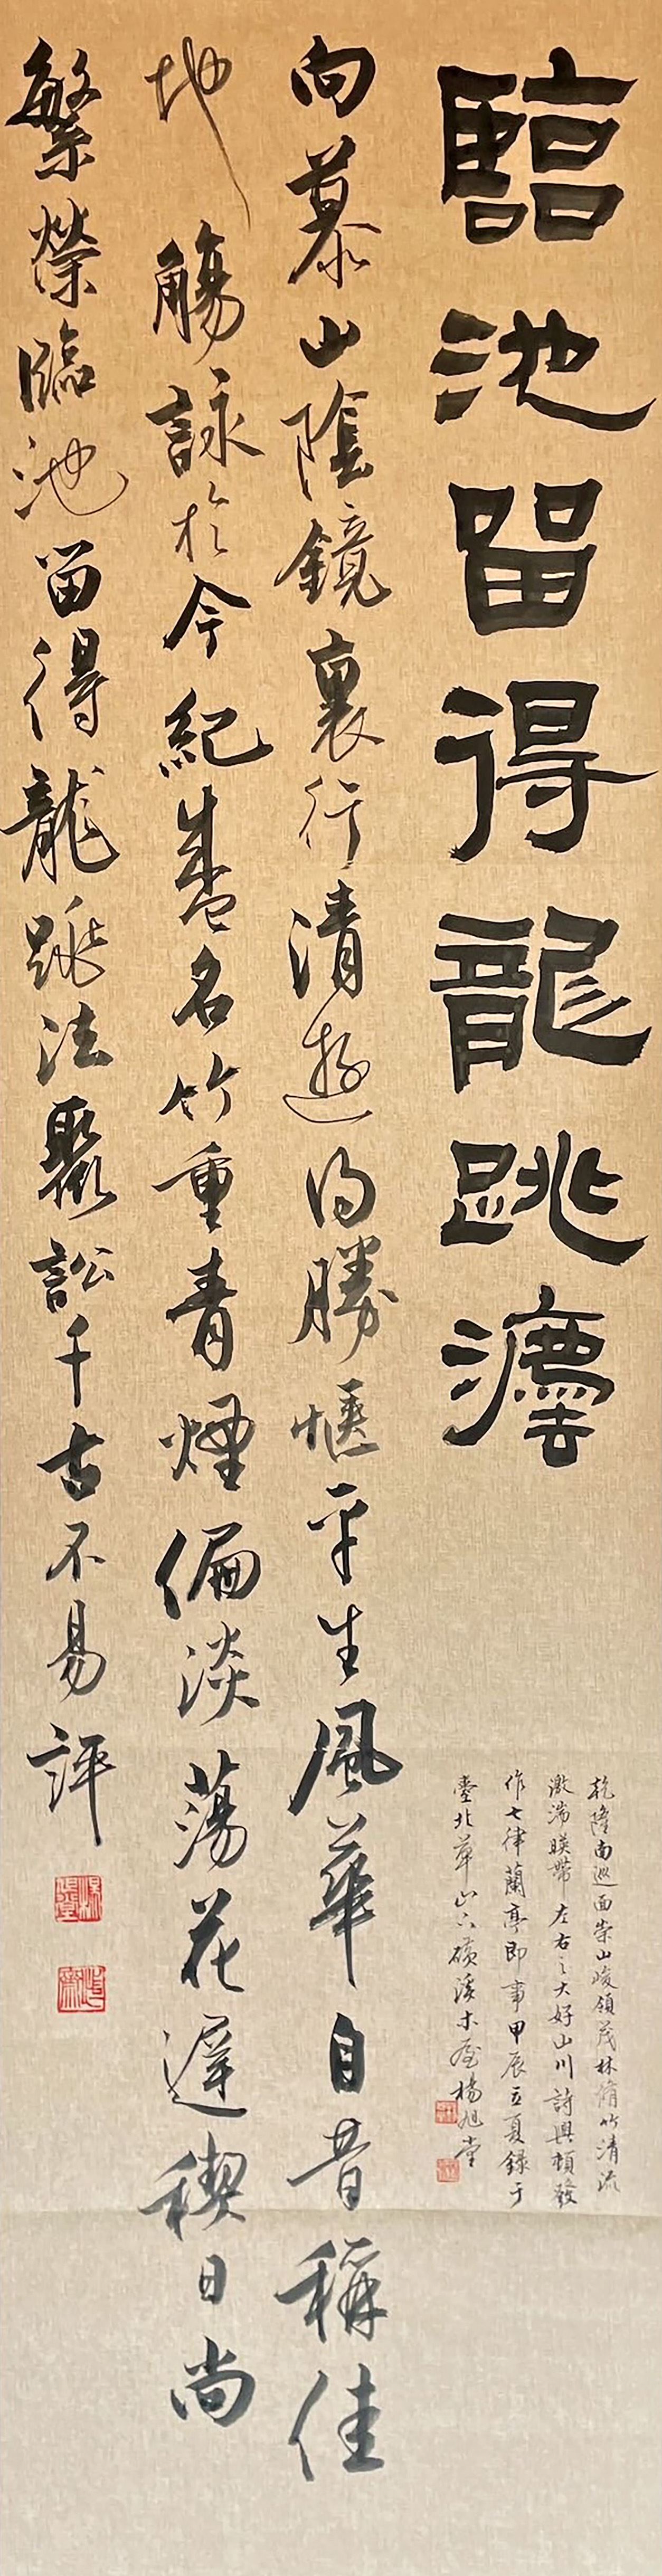 臨池留得龍跳灋
乾隆南巡面崇山峻領茂林脩竹清流
激湍暎帶左右之大好山川詩興頓發
作七律蘭亭即事甲辰立夏錄于
臺北草山六礦溪木屋楊旭堂
向慕山陰鏡裏行清遊得勝愜平生風華自昔稱佳
地觴詠於今紀盛名竹重青煙偏淡蕩花遲禊日尚
繁榮臨池留得龍跳法聚訟千古不易評